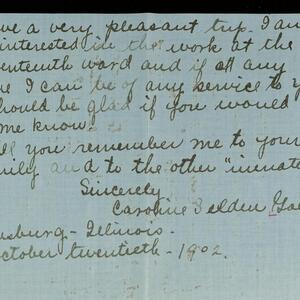 ve a very pleasant trip. I am
interested in the work at the
enteenth ward and if at any
e I can be of any service to y
hould be glad if you would
me know.
ll you remember me to your
mily and to the other "inmate
Sincerely
Caroline Belden
sburg - Illinois -
ctober twentieth - 1902.